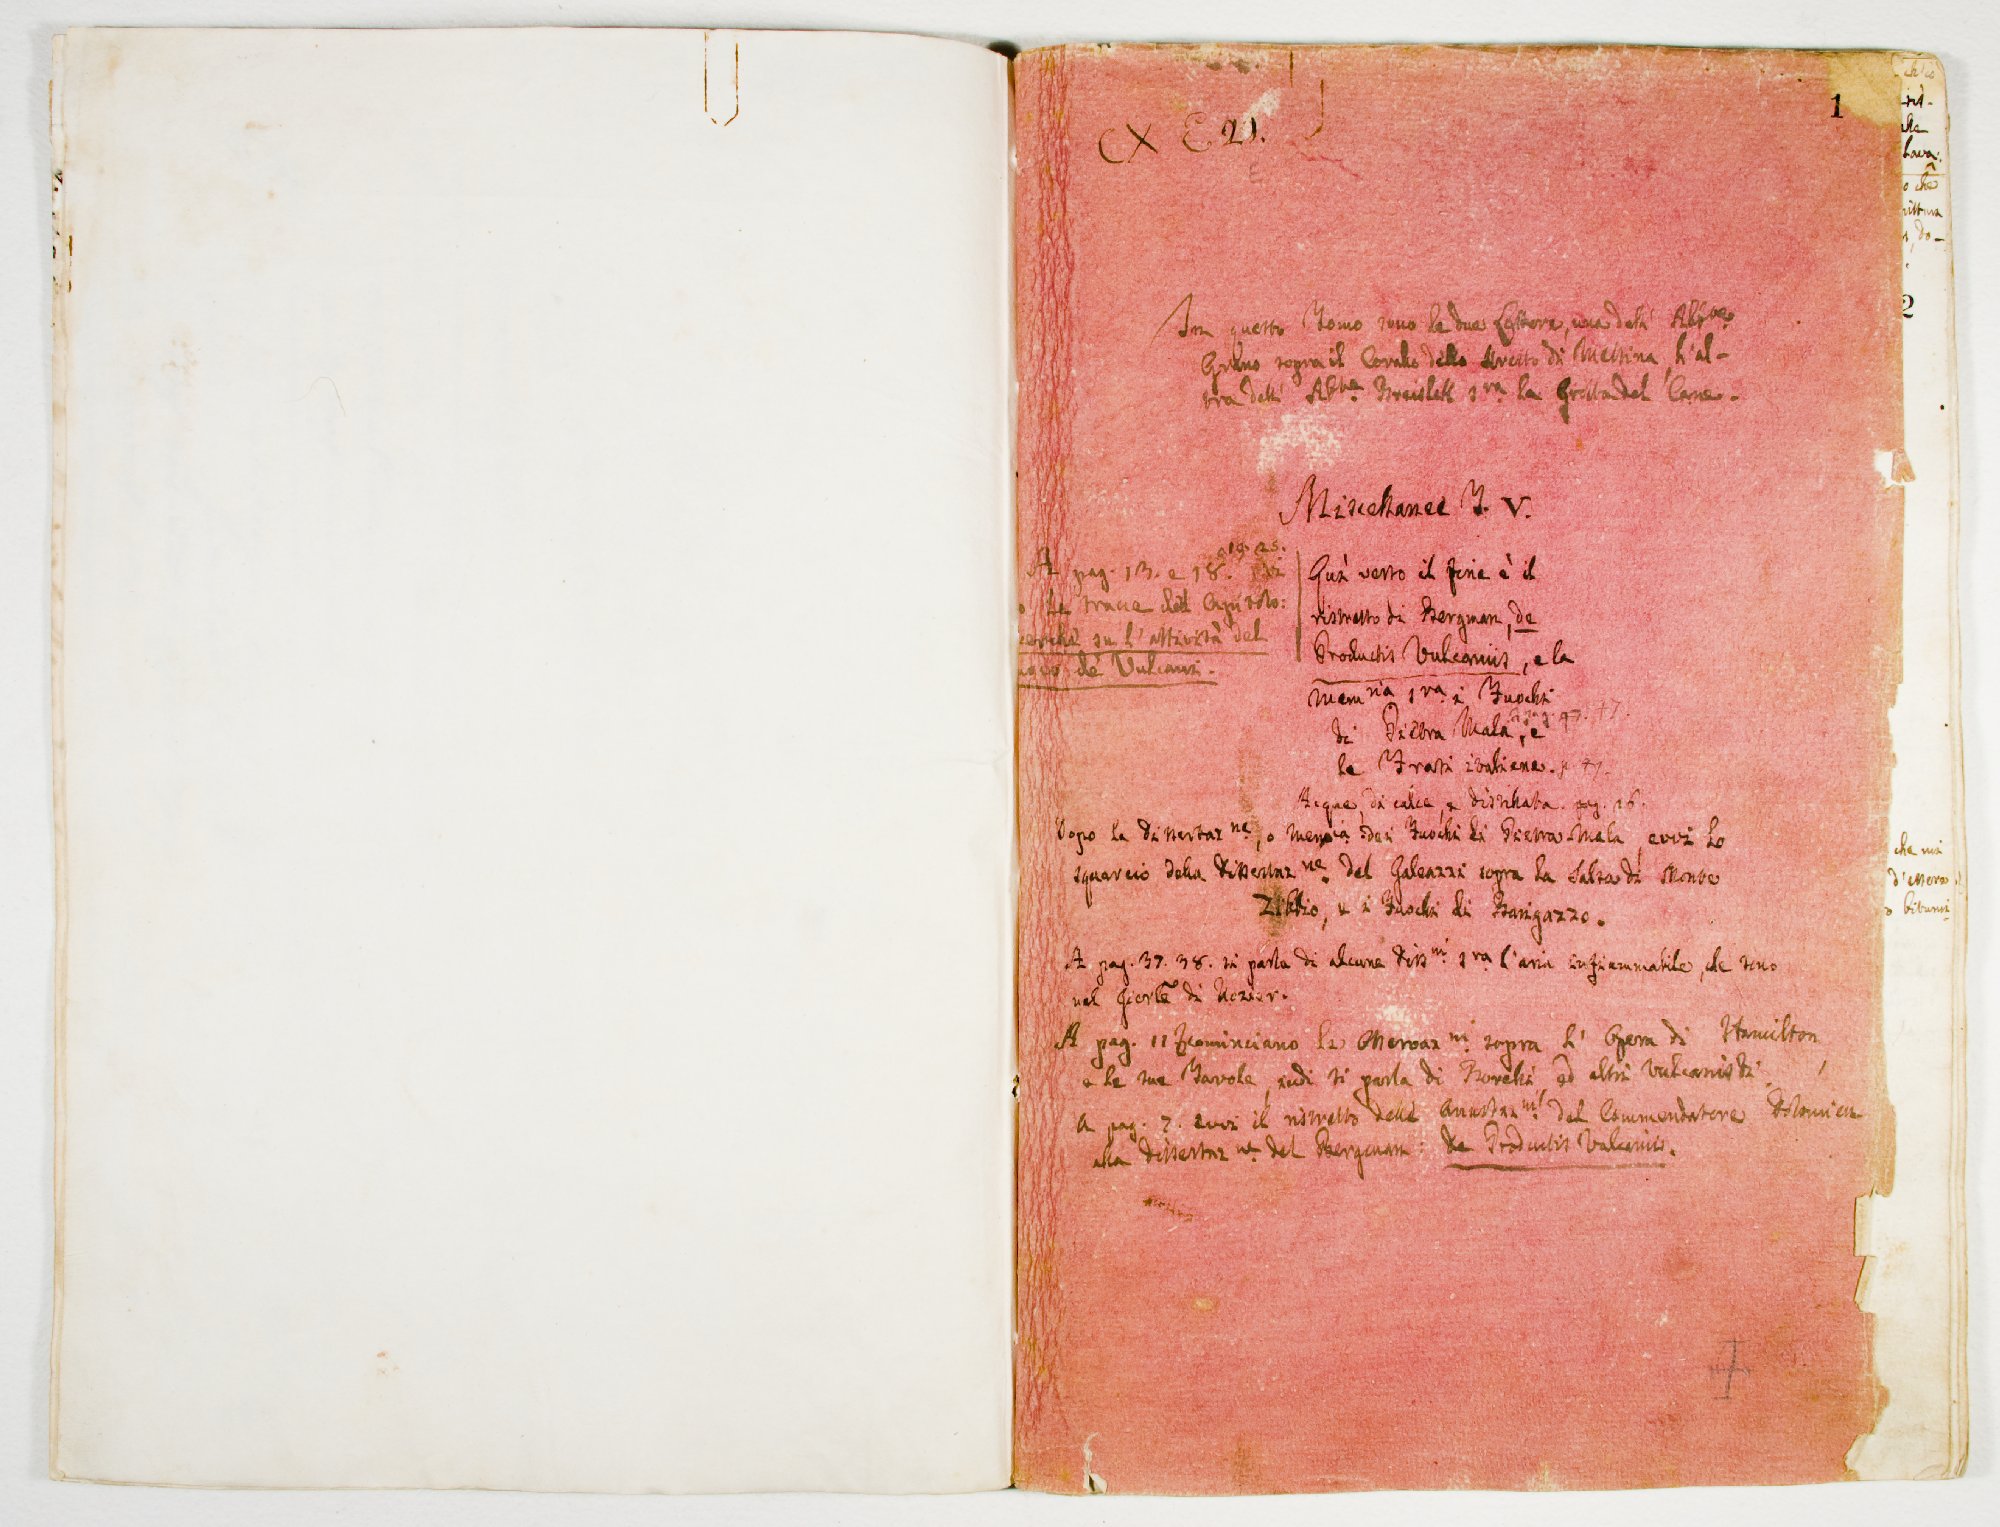 1
CX E 21.
In questo Tomo sono le due Lettere, una dell' Abbe
sopra il Corallo dello Stretto di Messina, l'al-
tra dell' Abte Breislak sra la Grotta del Cane.
Miscellanee T. V.
19. 25.
A pag. 13. e 18.
le tracce del Capitolo:
su l'attività del
de' Vulcani.
Quì verso il fine è il
ristretto di Bergman, de
Productis Vulcaniis, e la
Memria sra i Fuochi
di Pietra Mala, e
le Frasi italiane. p. 47.
Acque di calce, e distillata. pag. 16.
Dopo la Dissertazne, o Memria dei Fuochi di Pietra Mala, evvi lo
squarcio della Dissertazne del Galeazzi sopra la Salsa di Monte
Zibbio, e i Fuochi di Barigazzo.
A pag. 37. 38. si parla di alcune Dissni sra l'aria infiammabile, che sono
nel Giorle di Rozier.
A pag. 11 cominciano le Osservazni sopra l' Opera di Hamilton
e le sue Tavole, indi si parla di Borelli, ed altri Vulcanisti.
A pag. 7. evvi il ristretto delle Annotazni del Commendatore Dolomieu
alla Dissertazne del Bergman: de Productis Vulcaniis.
2
che mi
d'essere
bitumi